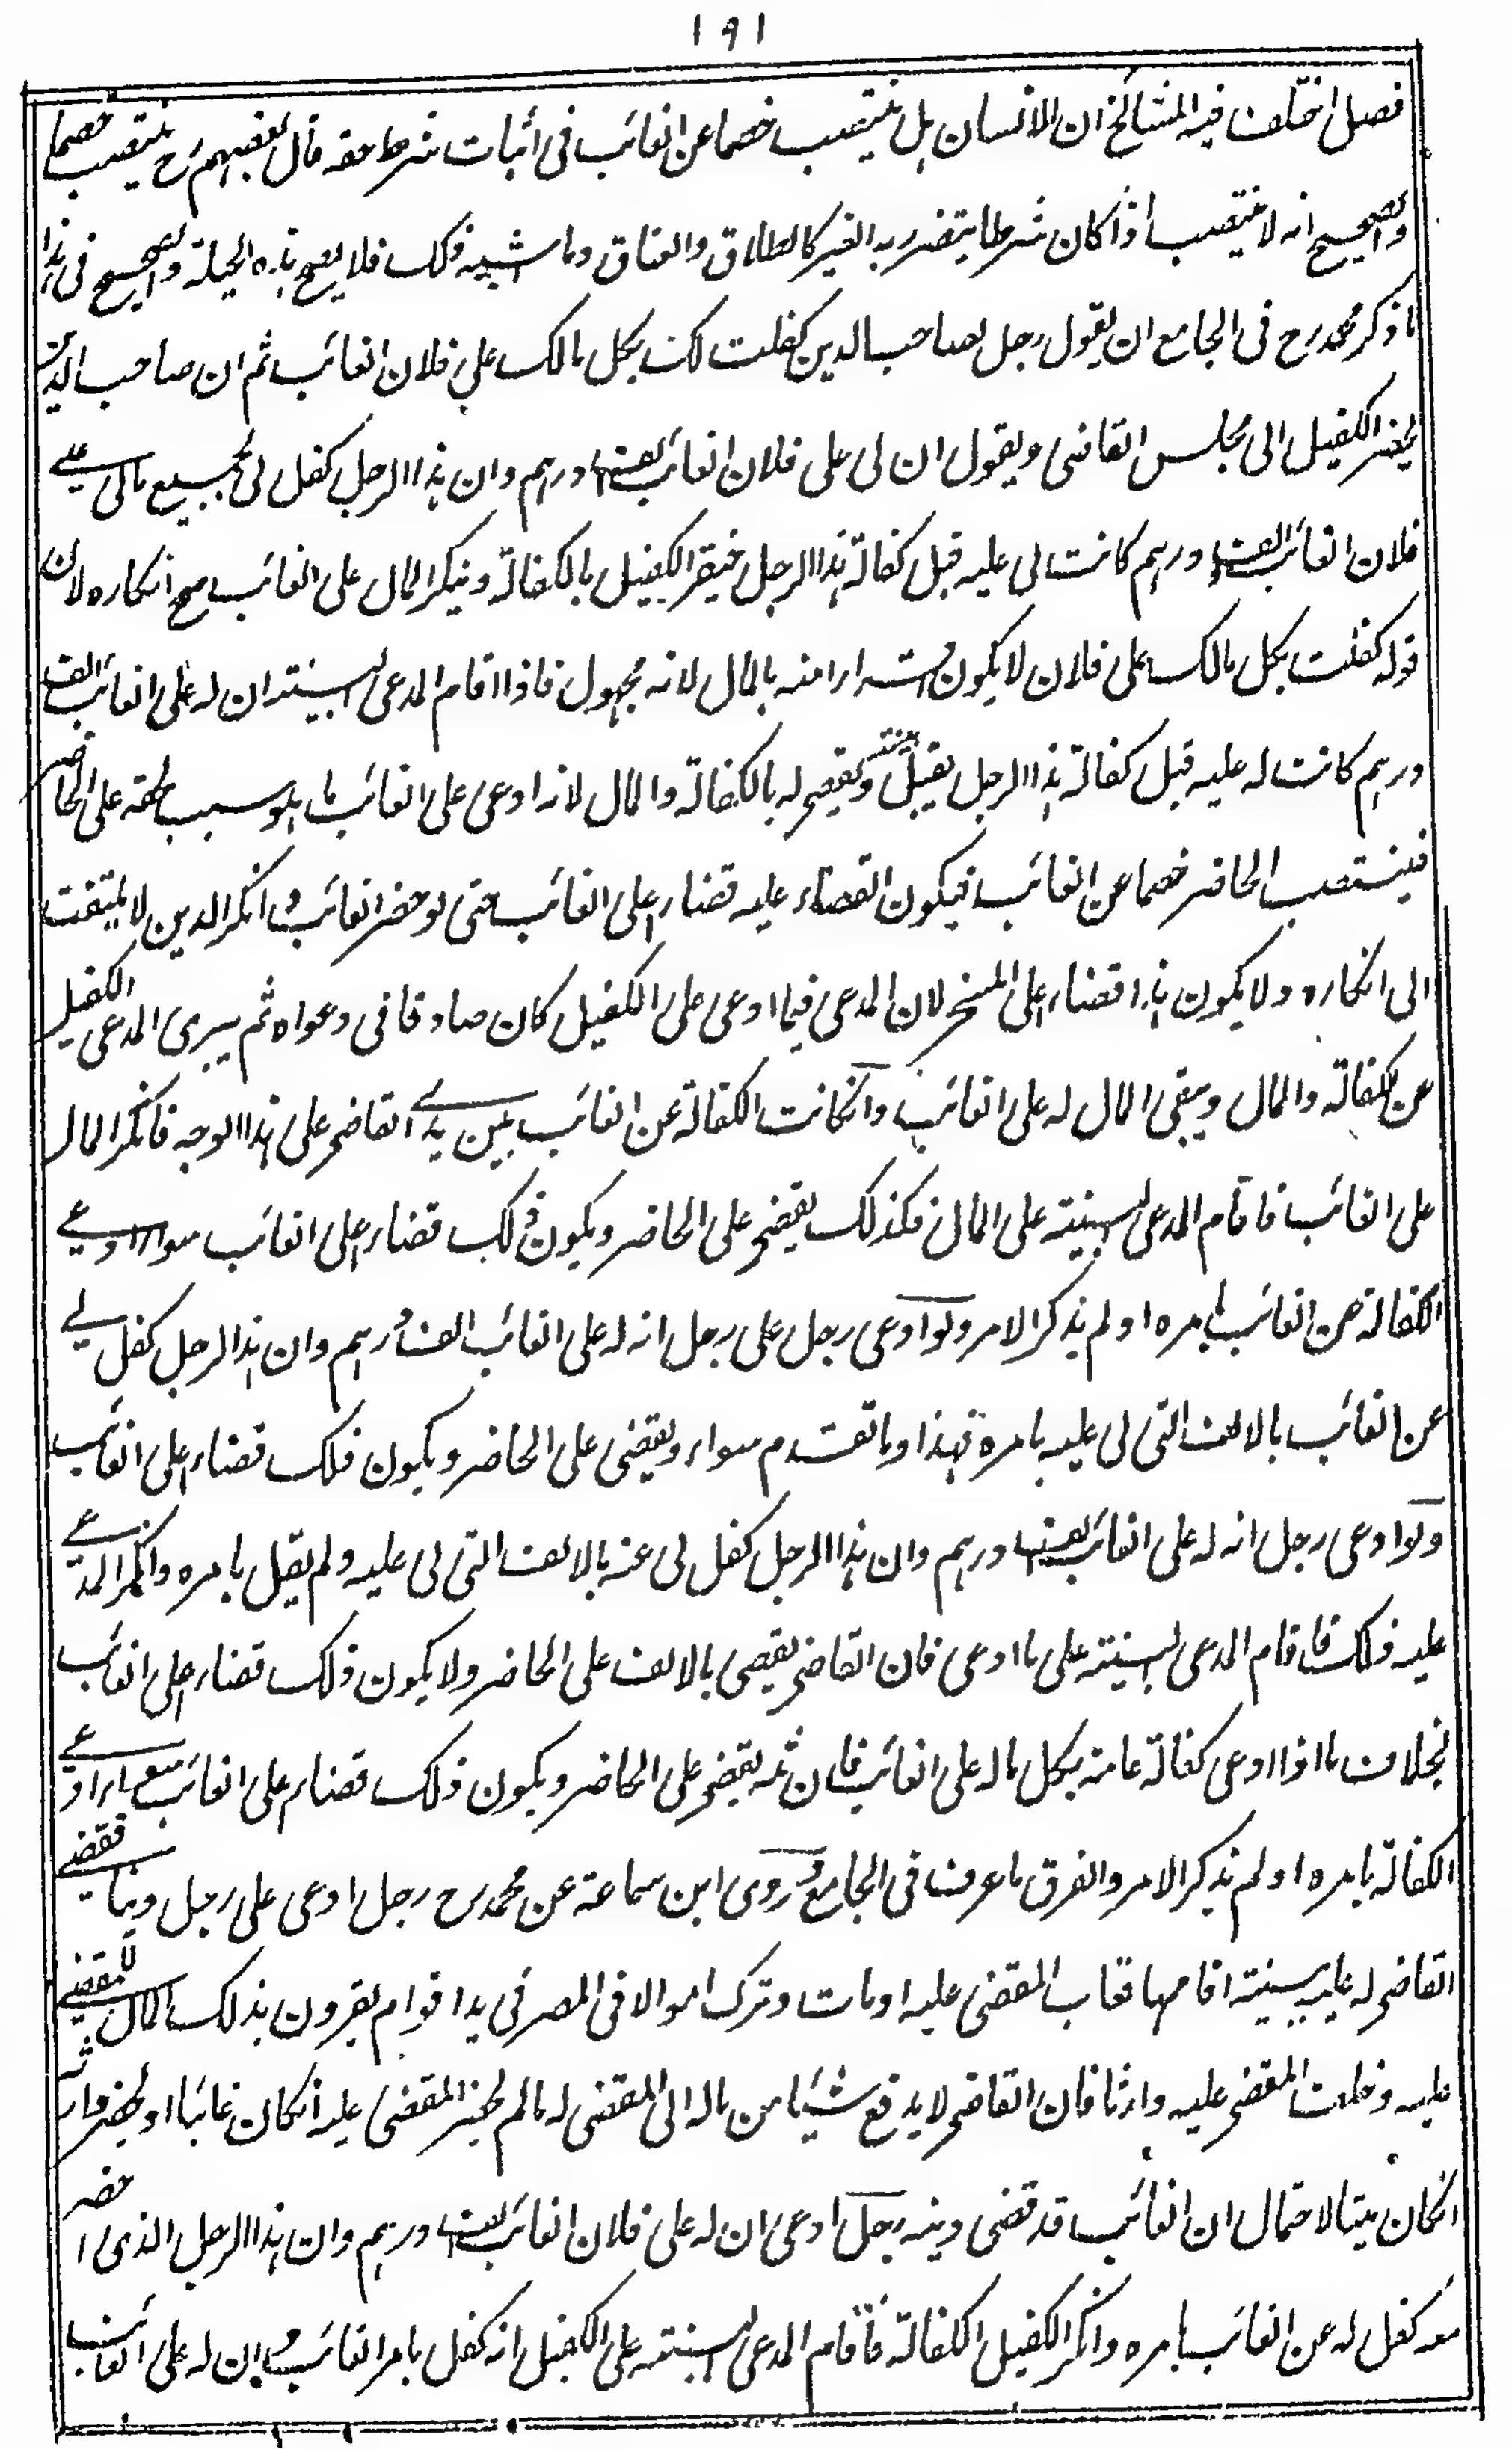 ١٩١
فصل اختلف فيه المشائخ ان الانسان هل ينتصب خصما عن الغائب فى اثبات شرط حقه قال بعضهم رح ينتصب خصما
والصحيح انه لا ينتصب اذا كان شرطا يتضرر به الغير كالطلاق والعتاق وما اشبه ذلك فلا يصح هذه الحيلة والصحيح فى هذا
ما ذكر محمد رح فى الجامع ان يقول رجل لصاحب الدين كفلت لك بكل مالك على فلان الغائب ثم ان صاحب الدين
يحضر الكفيل الى مجلس القاضى ويقول ان لى على فلان الغائب الف درهم وان هذا الرجل كفل لى بجميع مالى على
فلان الغائب الف درهم كانت لى عليه قبل كفالة هذا الرجل فيقر الكفيل بالكفالة وينكر المال على الغائب صح انكاره لان
قوله كفلت بكل مالك على فلان لا يكون اقرارا منه بالمال لانه مجهول فاذا اقام المدعى البينة ان له على الغائب الف
درهم كانت له عليه قبل كفالة هذا الرجل يقبل بينته ويقضى له بالكفالة والمال لانه ادعى على الغائب ما هو سبب لحقه على الحاضر
فينتصب الحاضر خصما عن الغائب فيكون القضاء عليه قضاء على الغائب حتى لو حضر الغائب وانكر الدين لا يلتفت
الى انكاره ولا يكون هذا قضاء على المسخر لان المدعى فيما ادعى على الكفيل كان صادقا فى دعواه ثم يبرى المدعى الكفيل
عن الكفالة والمال ويبقى المال له على الغائب وانكانت الكفالة عن الغائب بين يدى القاضى على هذا الوجه فانكر المال
على الغائب فاقام المدعى البينة على المال فكذلك يقضى على الحاضر ويكون ذلك قضاء على الغائب سواء ادعى
الكفالة عن الغائب بامره او لم يذكر الامر ولو ادعى رجل على رجل انه له على الغائب الف درهم وان هذا الرجل كفل لى
عن الغائب بالالف التى لى عليه بامره فهذا وما تقدم سواء ويقضى على الحاضر ويكون ذلك قضاء على الغائب
ولو ادعى رجل انه له على الغائب الف درهم وان هذا الرجل كفل لى عنه بالالف التى لى عليه ولم يقل بامره وانكر المدعى
عليه ذلك فاقام المدعى البينة على ما ادعى فان القاضى يقضى بالالف على الحاضر ولا يكون ذلك قضاء على الغائب
بخلاف ما اذا ادعى كفالة عامة بكل ماله على الغائب فان ثمه يقضى على الحاضر ويكون ذلك قضاء على الغائب سواء ادعى
الكفالة بامره او لم يذكر الامر والفرق ما عرف فى الجامع وروى ابن سماعة عن محمد رح رجل ادعى على رجل دينا فقضى
القاضى له عليه ببينة اقامها فغاب المقضى عليه او مات وترك اموالا فى المصر فى يد اقوام يقرون بذلك المال للمقضى
عليه وخلف المقضى عليه وارثا فان القاضى لا يدفع شيئا من ماله الى المقضى له مالم يحضر المقضى عليه انكان غائبا او يحضر وارثه
انكان ميتا لاحتمال ان الغائب قد قضى دينه رجل ادعى ان له على فلان الغائب الف درهم وان هذا الرجل الذى احضر
معه كفل له عن الغائب بامره وانكر الكفيل الكفالة فاقام المدعى البينة على الكفيل انه كفل بامر الغائب وان له على الغائب